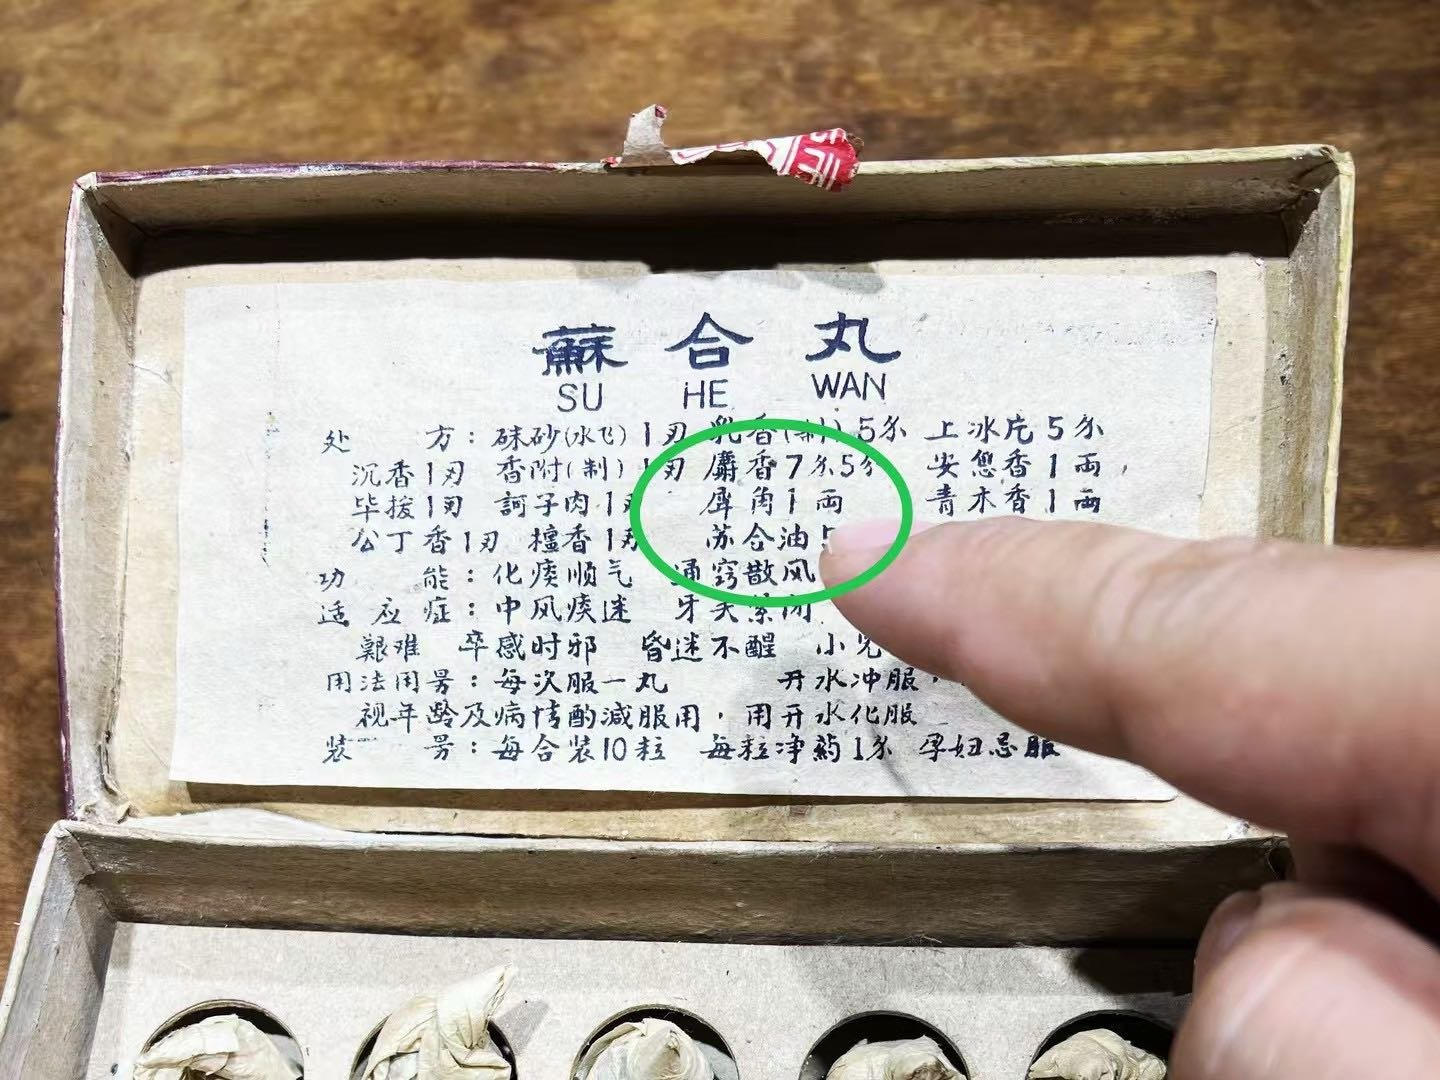 蘇合丸
SU HE WAN
处方：硃砂(水飞)1刄 乳香(制)5尒 上冰片5尒
沉香1刄 香附(制)1刄 麝香7尒5分 安息香1両，
毕拨1刄 訶子肉1 犀角1両 青木香1両
公丁香1刄 檀香1 苏合油5
功能：化痰顺气 通窍散风
适应症：中风痰迷 牙关紧闭
艱难 卒感时邪 昏迷不醒 小児
用法用量：每次服一丸 开水冲服，
视年龄及病情酌減服用，用开水化服
装量：每合装10粒 每粒净药1尒 孕妇忌服